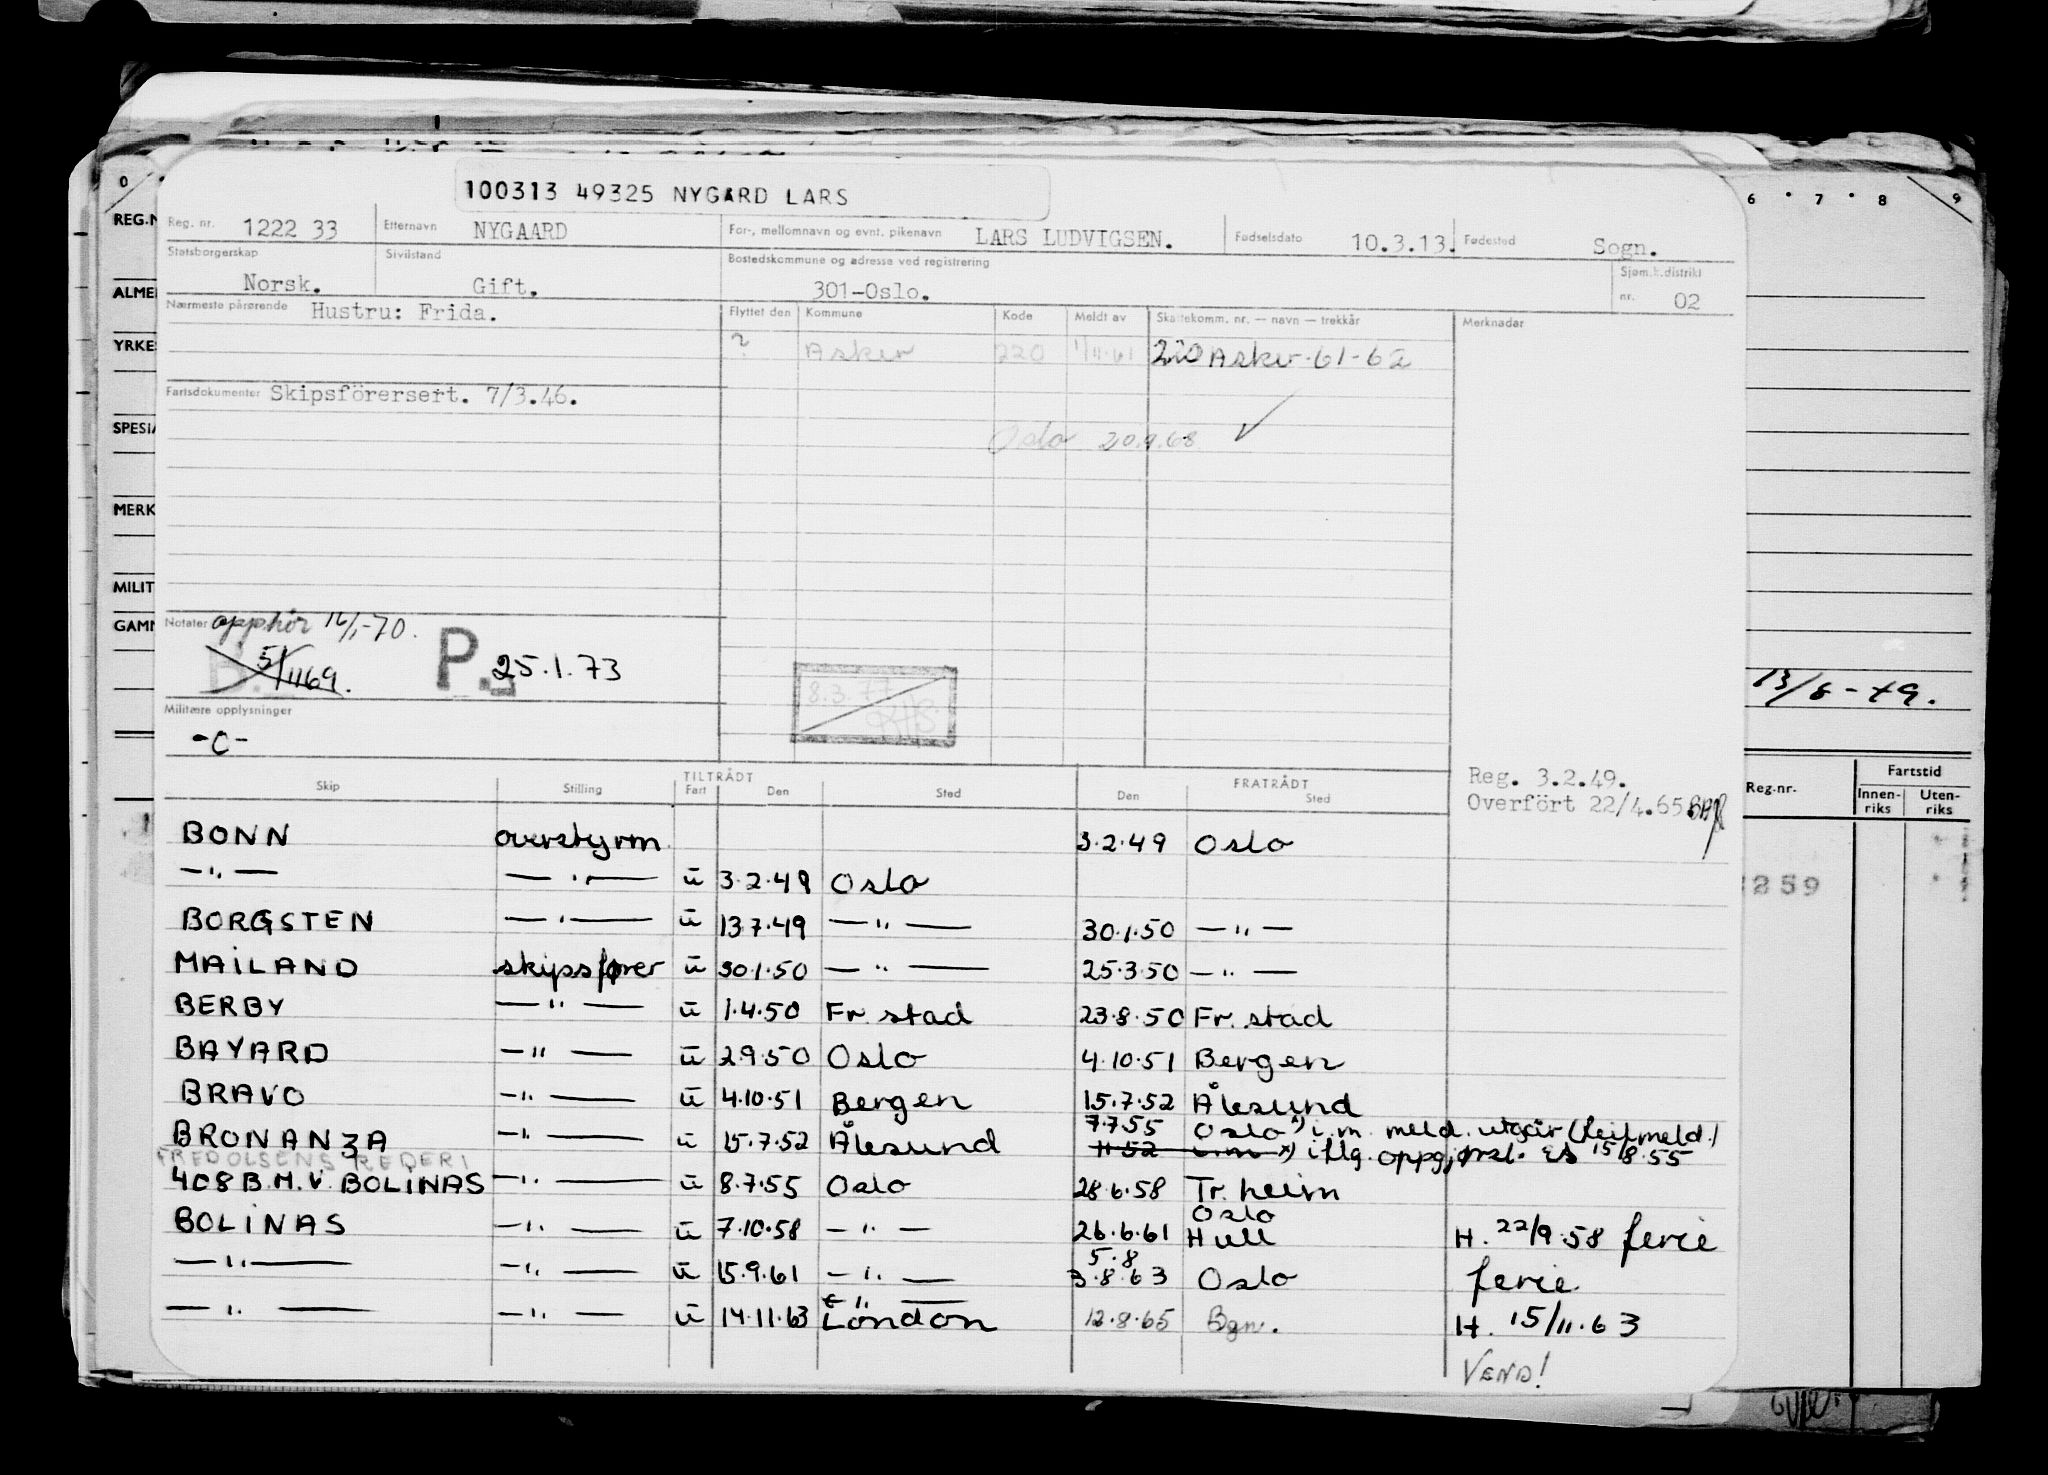 0 6 7 8 9
100313 49325 NYGÅRD LARS
REG.N
Reg. nr. 1222 33 Etternavn NYGAARD For-, mellomnavn og evnt. pikenavn LARS LUDVIGSEN. Fødselsdato 10.3.13. Fødested Sogn.
Statsborgerskap Norsk. Sivilstand Gift. Bostedskommune og adresse ved registrering 301-Oslo. Sjøm.k.distrikt nr. 02
ALME
Nærmeste pårørende Hustru: Frida. Flyttet den Kommune Kode Meldt av Skattekomm. nr. — navn — trekkår Merknader
YRKE
? Asker 220 1/11.61 220 Asker.61-62
Fartsdokumenter Skipsförersert. 7/3.46.
SPESI
Oslo 20.9.68 ✓
MERK
MILIT
GAMM
Notater opphör 16/1-70.
B. 5/11 69. P. 25.1.73
8.3.77
13/6-49.
Militære opplysninger
-0-
Reg. 3.2.49.
Overfört 22/4.65
Skip Stilling TILTRÅDT Fart Den Sted FRATRÅDT Den Sted
Reg.nr. Fartstid Innen-riks Uten-riks
BONN overstyrm. 3.2.49 Oslo
—"— —"— u 3.2.49 Oslo
259
BORGSTEN —"— u 13.7.49 —"— 30.1.50 —"—
MAILAND skipsfører u 30.1.50 —"— 25.3.50 —"—
BERBY —"— u 1.4.50 Fr.stad 23.8.50 Fr.stad
BAYARD —"— u 2.9.50 Oslo 4.10.51 Bergen
BRAVO —"— u 4.10.51 Bergen 15.7.52 Ålesund
7.7.55 Oslo x) i.m. meld. utgår (feilmeld.)
BRONANZA —"— u 15.7.52 Ålesund 11.52 x) iflg. oppgj. 15/8.55
FRED OLSENS REDERI
408 B.M.V. BOLINAS —"— u 8.7.55 Oslo 28.6.58 Tr.heim
Oslo
BOLINAS —"— u 7.10.58 —"— 26.6.61 Hull H. 22/9.58 ferie
5.8
—"— —"— u 15.9.61 —"— 3.8.63 Oslo ferie
—"—
—"— —"— u 14.11.63 London 12.8.65 Bgn. H. 15/11.63
VEND!